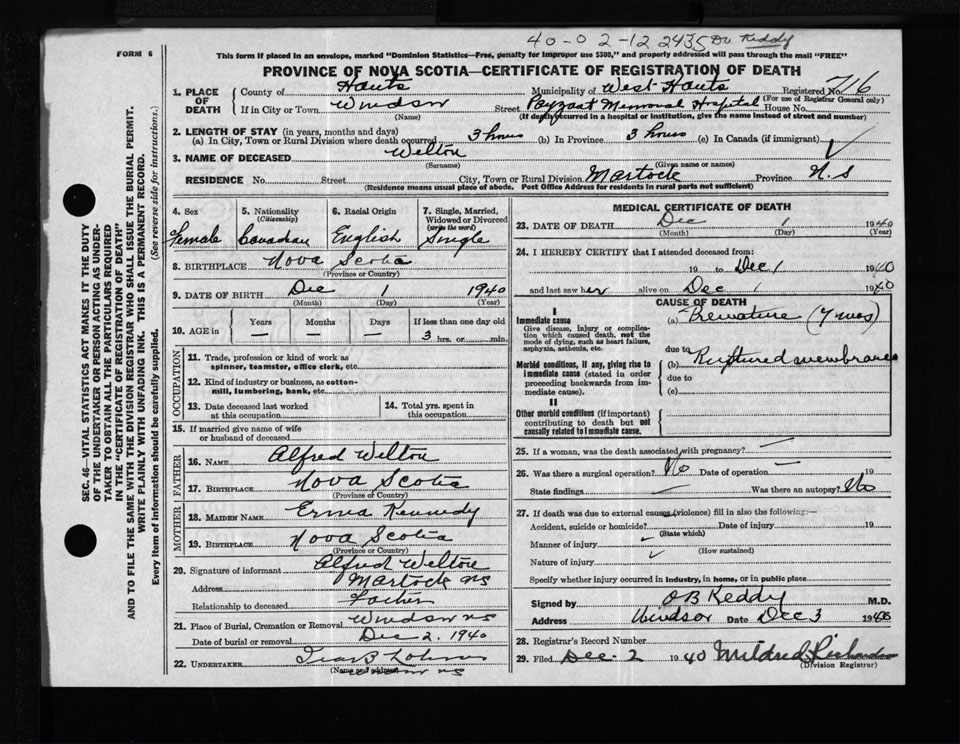 40-02-12 2435 Dr Keddy
FORM 6
This form if placed in an envelope, marked "Dominion Statistics—Free, penalty for improper use $300," and properly addressed will pass through the mail "FREE"
PROVINCE OF NOVA SCOTIA—CERTIFICATE OF REGISTRATION OF DEATH
1. PLACE OF DEATH County of Hants Municipality of West Hants Registered No. 716
(For use of Registrar General only)
If in City or Town Windsor Street Payzant Memorial Hospital House No.
(Name) (If death occurred in a hospital or institution, give the name instead of street and number)
2. LENGTH OF STAY (in years, months and days)
(a) In City, Town or Rural Division where death occurred 3 hours (b) In Province 3 hours (c) In Canada (if immigrant)
3. NAME OF DECEASED Welton
(Surname) (Given name or names)
RESIDENCE No. Street City, Town or Rural Division Martock Province N.S
(Residence means usual place of abode. Post Office Address for residents in rural parts not sufficient)
4. Sex Female
5. Nationality (Citizenship) Canadian
6. Racial Origin English
7. Single, Married, Widowed or Divorced (write the word) Single
8. BIRTHPLACE Nova Scotia
(Province or Country)
9. DATE OF BIRTH Dec 1 1940
(Month) (Day) (Year)
10. AGE in Years Months Days If less than one day old
— — — 3 hrs. or min.
OCCUPATION
11. Trade, profession or kind of work as spinner, teamster, office clerk, etc.
12. Kind of industry or business, as cotton-mill, lumbering, bank, etc.
13. Date deceased last worked at this occupation
14. Total yrs. spent in this occupation
15. If married give name of wife or husband of deceased
FATHER
16. NAME Alfred Welton
17. BIRTHPLACE Nova Scotia
(Province or Country)
MOTHER
18. MAIDEN NAME Erma Kennedy
19. BIRTHPLACE Nova Scotia
(Province or Country)
20. Signature of informant Alfred Welton
Address Martock NS
Relationship to deceased Father
21. Place of Burial, Cremation or Removal Windsor NS
Date of burial or removal Dec 2. 1940
22. UNDERTAKER
(Name and address) Windsor NS
MEDICAL CERTIFICATE OF DEATH
23. DATE OF DEATH Dec 1 1940
(Month) (Day) (Year)
24. I HEREBY CERTIFY that I attended deceased from:
19 to Dec 1 1940
and last saw her alive on Dec 1 1940
CAUSE OF DEATH
I
Immediate cause
Give disease, injury or complication which caused death, not the mode of dying, such as heart failure, asphyxia, asthenia, etc.
(a) Premature (7 mos)
due to
Morbid conditions, if any, giving rise to immediate cause (stated in order proceeding backwards from immediate cause).
(b) Ruptured membranes
due to
(c)
II
Other morbid conditions (if important) contributing to death but not causally related to immediate cause.
25. If a woman, was the death associated with pregnancy? —
26. Was there a surgical operation? No Date of operation — 19
State findings Was there an autopsy? No
27. If death was due to external causes (violence) fill in also the following:—
Accident, suicide or homicide? Date of injury 19
(State which)
Manner of injury
(How sustained)
Nature of injury
Specify whether injury occurred in industry, in home, or in public place
Signed by O B Keddy M.D.
Address Windsor Date Dec 3 1940
28. Registrar's Record Number
29. Filed Dec. 2 1940 Mildred
(Division Registrar)
SEC. 46—VITAL STATISTICS ACT MAKES IT THE DUTY
OF THE UNDERTAKER OR PERSON ACTING AS UNDER-
TAKER TO OBTAIN ALL THE PARTICULARS REQUIRED
IN THE "CERTIFICATE OF REGISTRATION OF DEATH"
AND TO FILE THE SAME WITH THE DIVISION REGISTRAR WHO SHALL ISSUE THE BURIAL PERMIT.
WRITE PLAINLY WITH UNFADING INK. THIS IS A PERMANENT RECORD.
Every item of information should be carefully supplied. (See reverse side for instructions.)